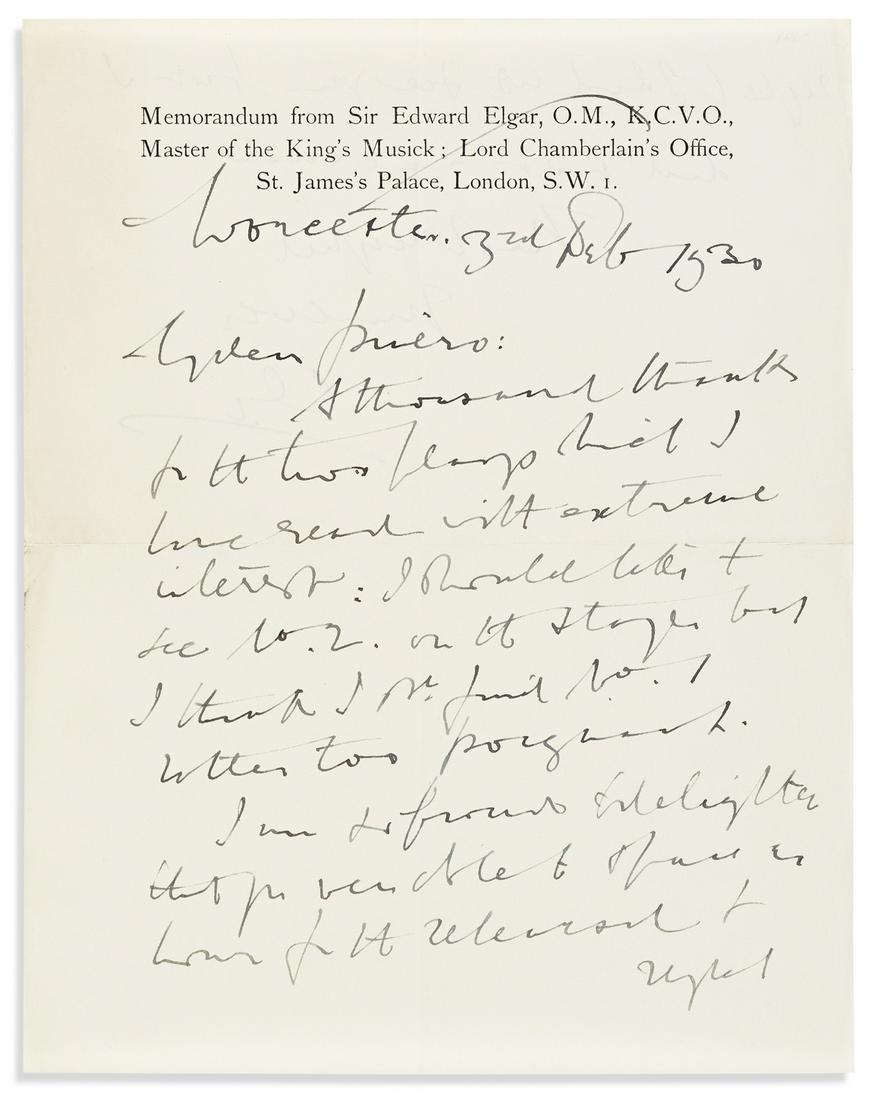 Memorandum from Sir Edward Elgar, O.M., K.C.V.O.,
Master of the King's Musick; Lord Chamberlain's Office,
St. James's Palace, London, S.W. 1.
Worcester. 3rd Feb 1930
My dear
A thousand thanks
for the two plays which I
have read with extreme
interest: I should like to
see No. 2. on the stage but
I think I shd. find No. 1
rather too poignant.
I am so proud & delighted
that you were able to spare an
hour for the rehearsal